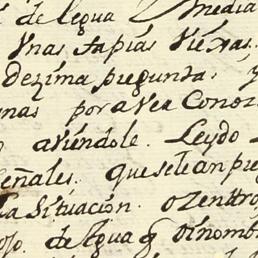 de legua Media
Vnas tapias Viexas.
Dezima pregunta y
por aver Conoz
aviéndole. Leydo
señales. que se le an pre
la Situación. o Zentro
de Agua q oi nomb